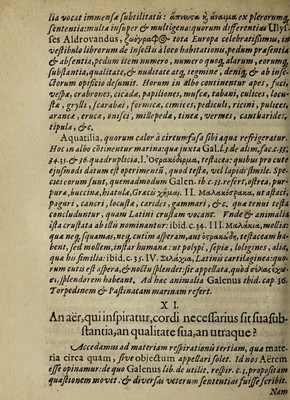 lia vocat immensæ subtilitati: ἄπνοα κ̀ ἄναιμα ex plerorumq́;
sententia: multa insuper & multigena: quorum differentias Ulys-
ses Aldrovandus, ζωόγραφος tota Europa celebratissimus, in
vestibulo librorum de Insectis à loco habitationis, pedum præsentia
& absentia, pedum item numero, numero quoq; alarum, eorumq́;
substantia, qualitate, & nuditate atq; tegmine, deniq; & ab inse-
ctorum opificio desumit. Horum in albo continentur apes, fuci,
vespæ, crabrones, cicadæ, papiliones, muscæ, tabani, culices, locu-
stæ, grylli, scarabæi, formicæ, cimices, pediculi, ricini, pulices,
araneæ, erucæ, onisci, millepeda, tineæ, vermes, cantharides,
tipula, &c.
Aquatilia, quorum calor à circumfusa sibi aqua refrigeratur.
Hoc in albo cõtinentur marina: quæ juxta Gal. l. 3 de alim. fac. c. 33.
34. 35. & 36. quadruplicia. 1. Ὀστρακόδερμα, testacea: quibus pro cute
ejusmodi datum est operimentũ, quod testæ, vel lapidi simile. Spe-
cies eorum sunt, quemadmodum Galen. ib. c. 33. refert, ostrea, pur-
pura, buccina, hiatula, Græcis χῆμαι. II. Μαλακόστρακα, ut astaci,
paguri, cancri, locustæ, carides, gammari, &c. quæ tenui testa
concluduntur, quam Latini crustam vocant. Unde & animalia
ista crustata ab illis nominantur: ibid. c. 34. III. Μαλάκια, mollia:
quæ neq́; squamas, neq́; cutim asperam, aut ὀστρακώδη, testaceam ha-
bent, sed mollem, instar humanæ: ut polypi, sepia, loligines, alia,
quæ his similia: ibid. c. 35. IV. Σελάχια, Latinis cartilaginea: quo-
rum cutis est aspera, & noctu splendet: sic appellata, quòd
splendorem habeant. Ad hæc animalia Galenus ibid. cap. 36.
Torpedinem & Pastinacam marinam refert.
XI.
An aër, qui inspiratur, cordi necessarius sit sua sub-
stantia, an qualitate sua, an utraque?
Accedamus ad materiam respirationis tertiam, quæ mate-
ria circa quam, sive objectum appellari solet. Id nos Aërem
esse opinemur: de quo Galenus lib. de utilit. respir. c. 1. propositam
quæstionem movet: & diversas veterum sententias fuisse scribit.
Nam